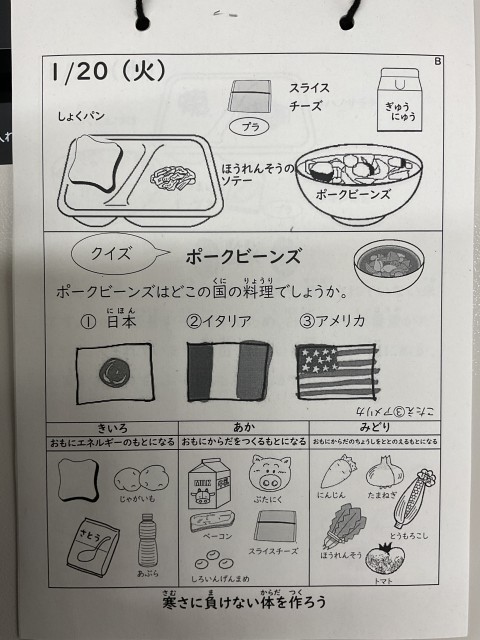 B
1/20（火）
スライス
チーズ
プラ
ぎゅう
にゅう
しょくパン
ほうれんそうの
ソテー
ポークビーンズ
クイズ
ポークビーンズ
ポークビーンズはどこの国の料理でしょうか。
くに
りょうり
① 日本
にほん
②イタリア
③アメリカ
こたえ③アメリカ
きいろ
あか
みどり
おもにエネルギーのもとになる
おもにからだをつくるもとになる
おもにからだのちょうしをととのえるもとになる
じゃがいも
さとう
あぶら
ぶたにく
ベーコン
スライスチーズ
しろいんげんまめ
にんじん
たまねぎ
とうもろこし
ほうれんそう
トマト
寒さに負けない体を作ろう
さむ
ま
からだ
つく